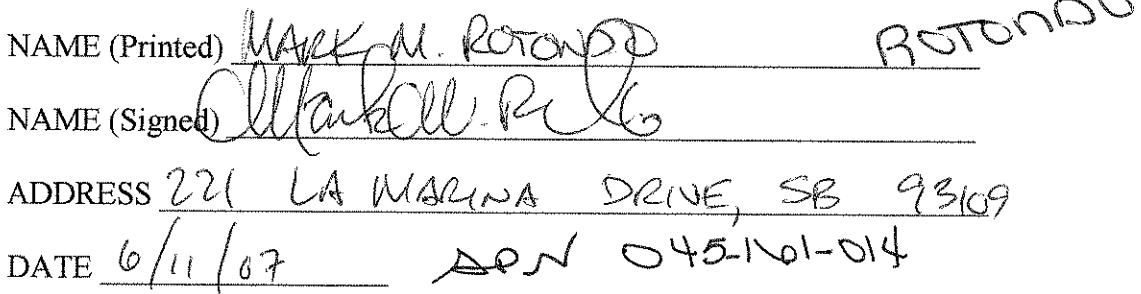 NAME (Printed) MARK M. ROTONDO ROTONDO
NAME (Signed) Mark M. R
ADDRESS 221 LA MARINA DRIVE, SB 93109
DATE 6/11/07 APN 045-161-014